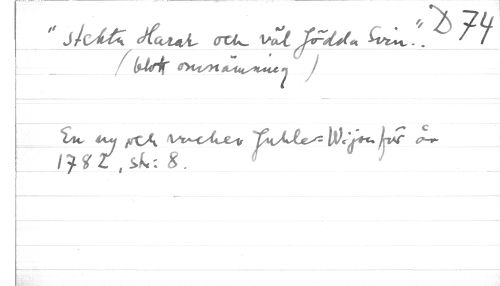 "stekta Harar och väl gödda Svin".. D 74
(blott omnämning)
En ny och vacker Juhle=Wijsa för år
1782, str: 8.